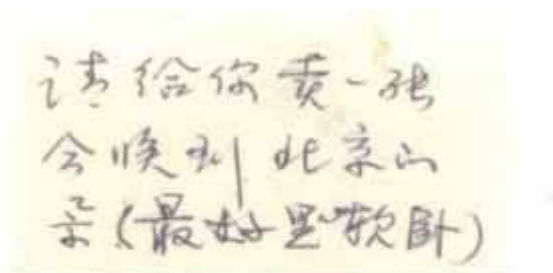 请给你卖一张
会候到北京的
票(最好是软卧)